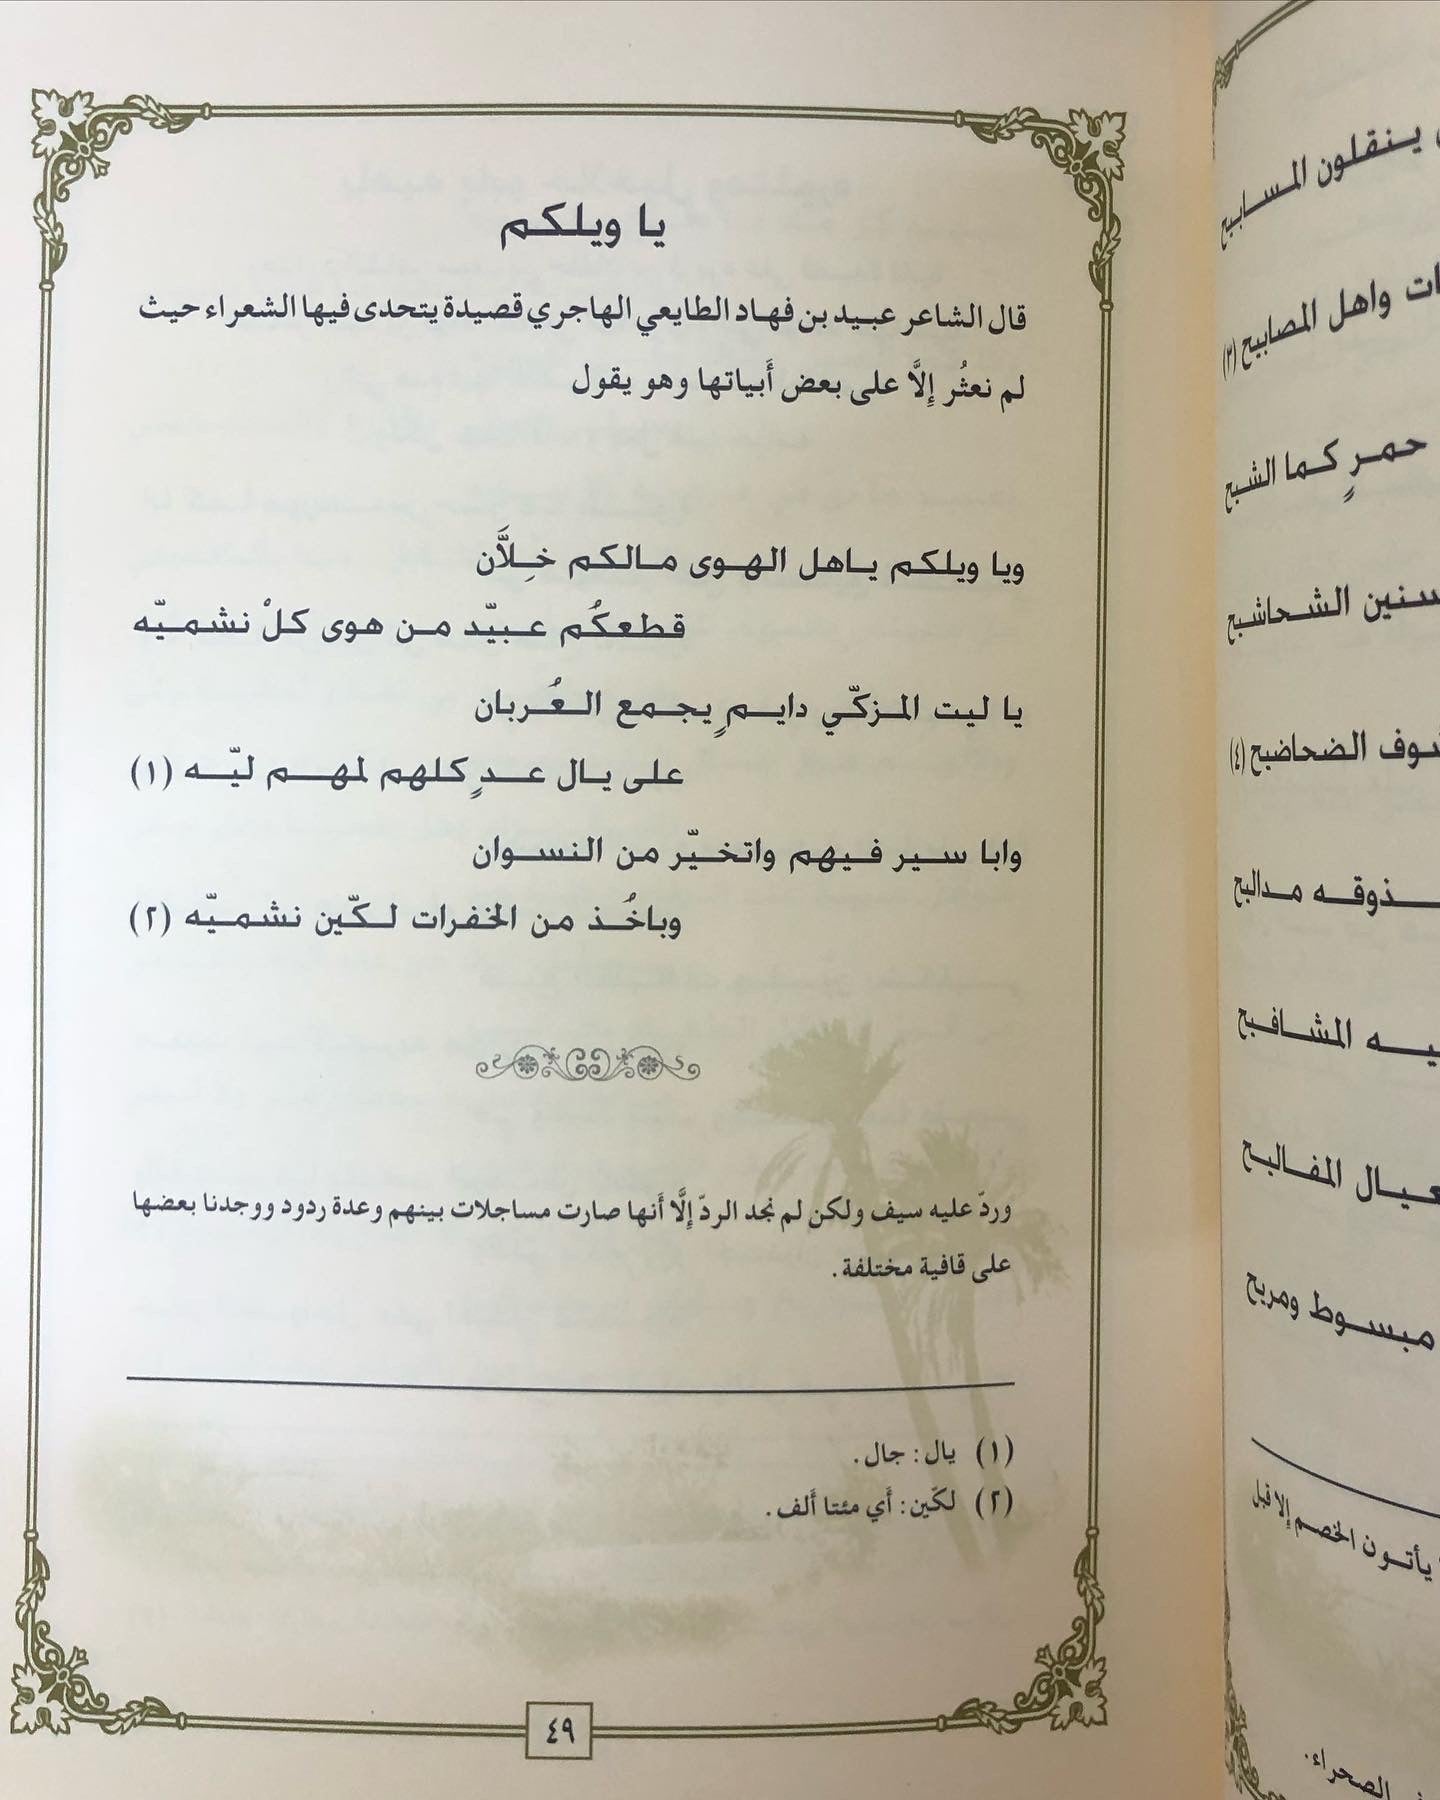 يا ويلكم
قال الشاعر عبيد بن فهاد الطايعي الهاجري قصيدة يتحدى فيها الشعراء حيث
لم نعثُر إِلَّا على بعض أَبياتها وهو يقول
ويا ويلكم ياهل الهوى مالكم خِلاَّن
قطعكُم عبيّد من هوى كلْ نشميّه
يا ليت المزكّي دايمٍ يجمع العُربان
على يال عدٍ كلهم لمهم ليّه (١)
وابا سير فيهم واتخيّر من النسوان
وباخُذ من الخفرات لكّين نشميّه (٢)
وردّ عليه سيف ولكن لم نجد الردّ إِلَّا أَنها صارت مساجلات بينهم وعدة ردود ووجدنا بعضها
على قافية مختلفة.
(١) يال: جال.
(٢) لكّين: أَي مئتا أَلف.
٤٩
ينقلون المسابيح
واهل المصابيح (٣)
حمرٍ كما الشبح
الشحاشبح
الضحاضبح (٤)
مدالبح
المشافبح
المفالبح
مبسوط ومريح
يأتون الخصم إِلا قبل
الصحراء.